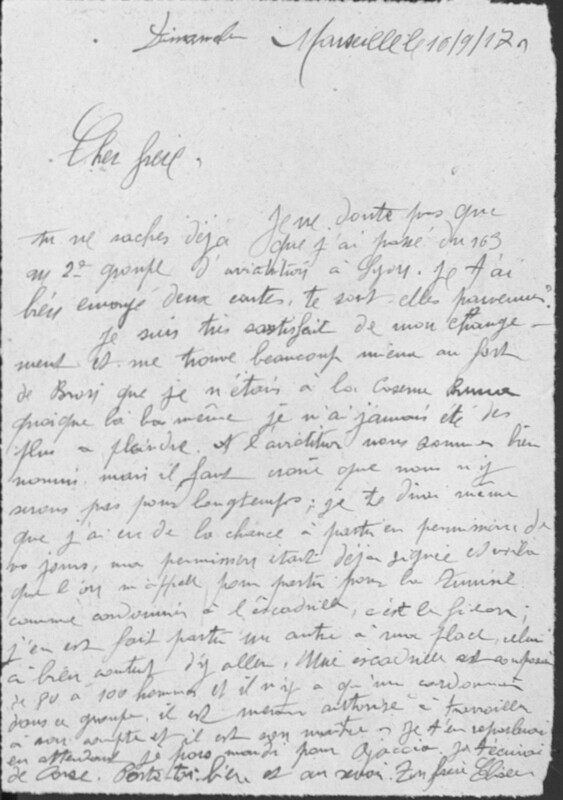 Dimanche Marseille le 10/9/17
Cher frère.
Je ne doute pas que
tu ne saches déjà que j'ai passé du 163
au 2e groupe d'aviation à Lyon. Je t'ai
bien envoyé deux cartes, te sont elles parvenues?
Je suis très satisfait de mon change-
ment et me trouve beaucoup mieux au fort
de Bron que je n'étais à la caserne
quoique là bas même je n'ai jamais été des
plus a plaindre. A l'aviation nous sommes bien
nourris mais il faut croire que nous n'y
serons pas pour longtemps; je te dirai même
que j'ai eu de la chance à partir en permission de
jours, ma permission était déjà signée et voila
que l'on m'appelle pour partir pour la Tunisie
comme cordonnier à l'escadrille, c'est la
j'en est fait partir un autre à ma place, celui
à bien content d'y aller. Une escadrille est composée
de 80 à 100 hommes et il n'y a qu'un cordonnier
dans ce groupe, il est même autorisé à travailler
à son compte et il est son maître. Je t'en reparlerai
en attendant je pars mardi pour Ajaccio. Je t'écrirai
de Corse. Porte toi bien et au revoir. Ton frère